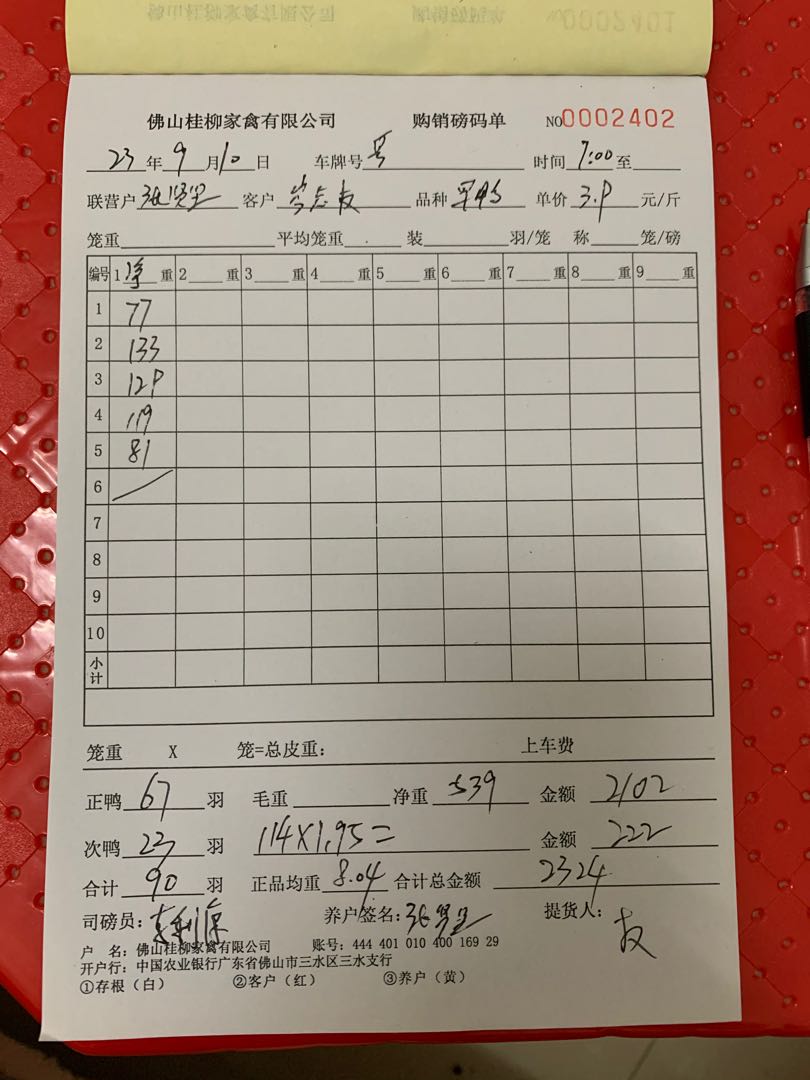 佛山桂柳家禽有限公司 购销磅码单 NO0002402
23年9月10日 车牌号 时间7:00至
联营户 客户 品种 单价3.9元/斤
笼重 平均笼重 . 装 羽/笼 称 笼/磅
编号 1净重 2 重 3 重 4 重 5 重 6 重 7 重 8 重 9 重
1 77
2 133
3 129
4 119
5 81
6
7
8
9
10
小计
笼重 X 笼=总皮重: 上车费
正鸭67羽 毛重 净重539 金额2102
次鸭23羽 114×1.95= 金额222
合计90羽 正品均重8.04 合计总金额2324
司磅员: 养户签名: 提货人:友
户 名:佛山桂柳家禽有限公司 账号:444 401 010 400 169 29
开户行:中国农业银行广东省佛山市三水区三水支行
①存根(白) ②客户(红) ③养户(黄)